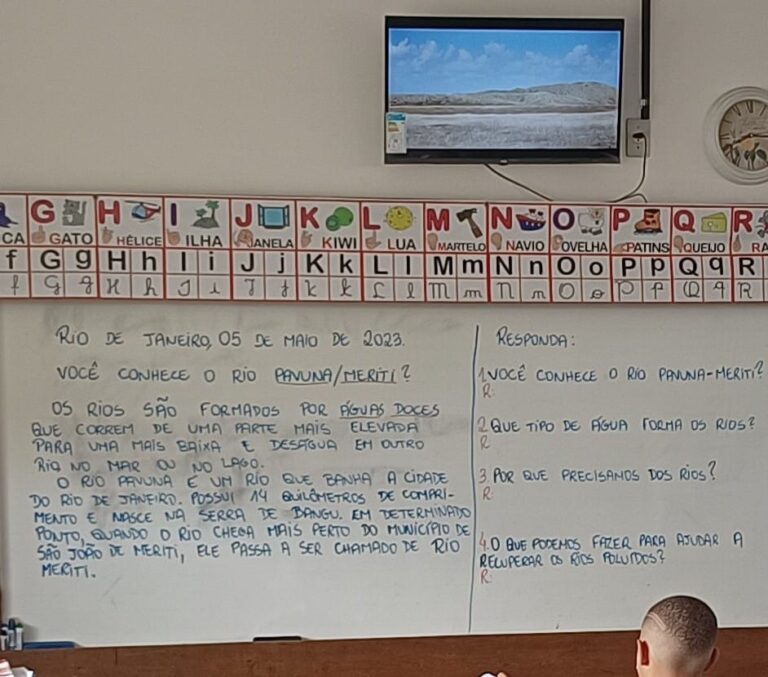 CA
G GATO
H HÉLICE
I ILHA
J JANELA
K KIWI
L LUA
M MARTELO
N NAVIO
O OVELHA
P PATINS
Q QUEIJO
R RA
f G g H h I i J j K k L l M m N n O o P p Q q R
f G g H h I i J j K k L l M m N n O o P p Q q R
RIO DE JANEIRO, 05 DE MAIO DE 2023.
VOCÊ CONHECE O RIO PAVUNA/MERITI?
OS RIOS SÃO FORMADOS POR ÁGUAS DOCES
QUE CORREM DE UMA PARTE MAIS ELEVADA
PARA UMA MAIS BAIXA E DESÁGUA EM OUTRO
RIO NO MAR OU NO LAGO.
O RIO PAVUNA É UM RIO QUE BANHA A CIDADE
DO RIO DE JANEIRO. POSSUI 14 QUILÔMETROS DE COMPRI-
MENTO E NASCE NA SERRA DE BANGU. EM DETERMINADO
PONTO, QUANDO O RIO CHEGA MAIS PERTO DO MUNICÍPIO DE
SÃO JOÃO DE MERITI, ELE PASSA A SER CHAMADO DE RIO
MERITI.
RESPONDA:
1. VOCÊ CONHECE O RIO PAVUNA-MERITI?
R:
2. QUE TIPO DE ÁGUA FORMA OS RIOS?
R
3. POR QUE PRECISAMOS DOS RIOS?
R:
4. O QUE PODEMOS FAZER PARA AJUDAR A
RECUPERAR OS RIOS POLUÍDOS?
R: